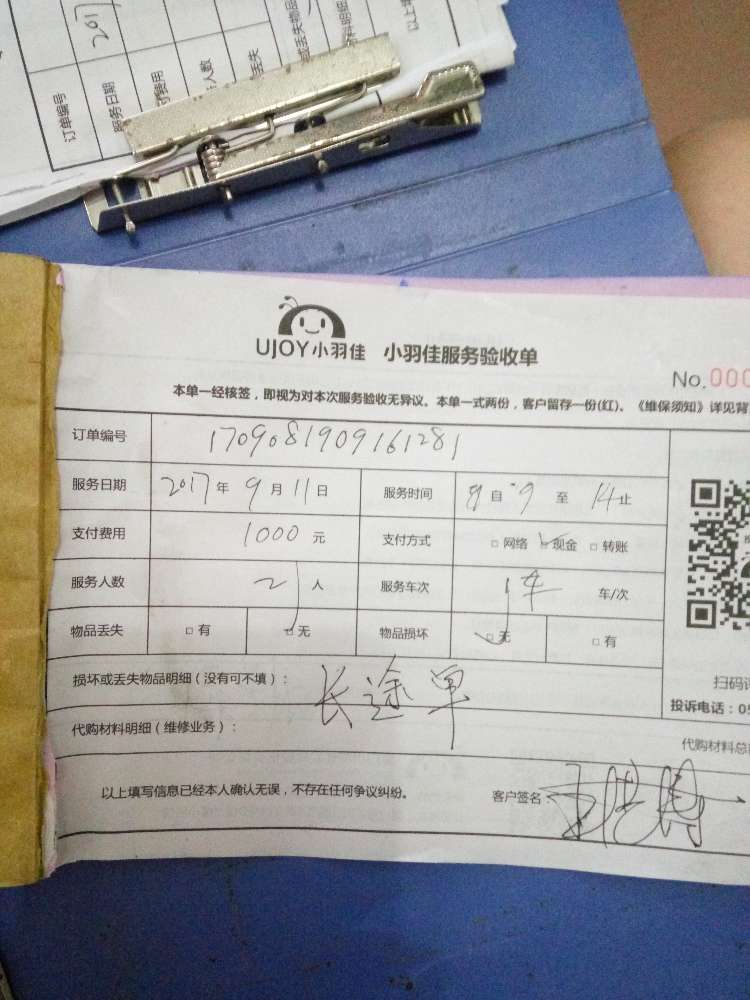 订单编号
服务日期
人数
丢失
以上
UJOY小羽佳 小羽佳服务验收单
No.000
本单一经核签，即视为对本次服务验收无异议。本单一式两份，客户留存一份(红)。《维保须知》详见背
订单编号 1709081909161281
服务日期 2017年9月11日 服务时间 自9至14止
支付费用 1000元 支付方式 □网络 □现金 □转账
服务人数 2人 服务车次 1车 车/次
物品丢失 □有 □无 物品损坏 □无 □有
扫码
损坏或丢失物品明细（没有可不填）： 长途单
投诉电话：05
代购材料明细（维修业务）：
代购材料总
以上填写信息已经本人确认无误，不存在任何争议纠纷。 客户签名：